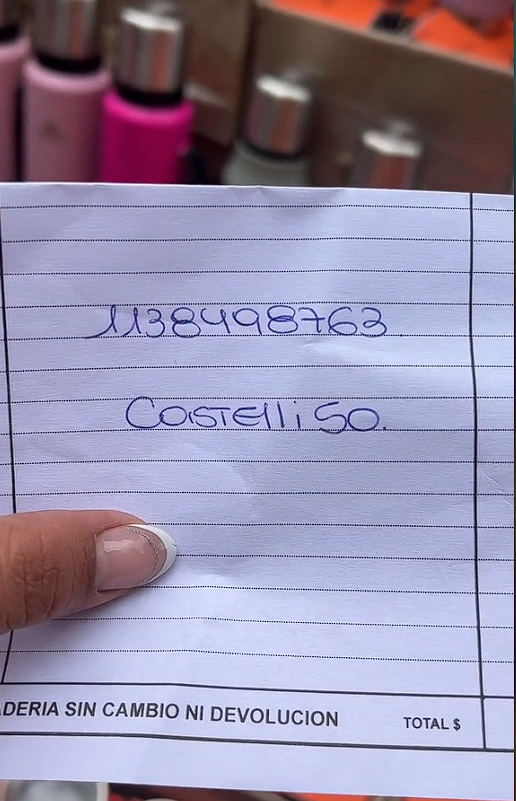 1138498763
Castelli 50.
DERIA SIN CAMBIO NI DEVOLUCION
TOTAL $